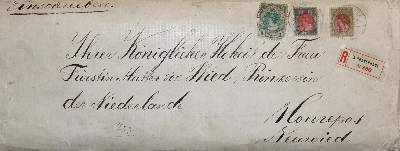 Einschreiben.
Ihrer Königlichen Hoheit der Frau
Fürstin Mutter zu Wied, Prinzessin
der Niederlande
Monrepos
Neuwied